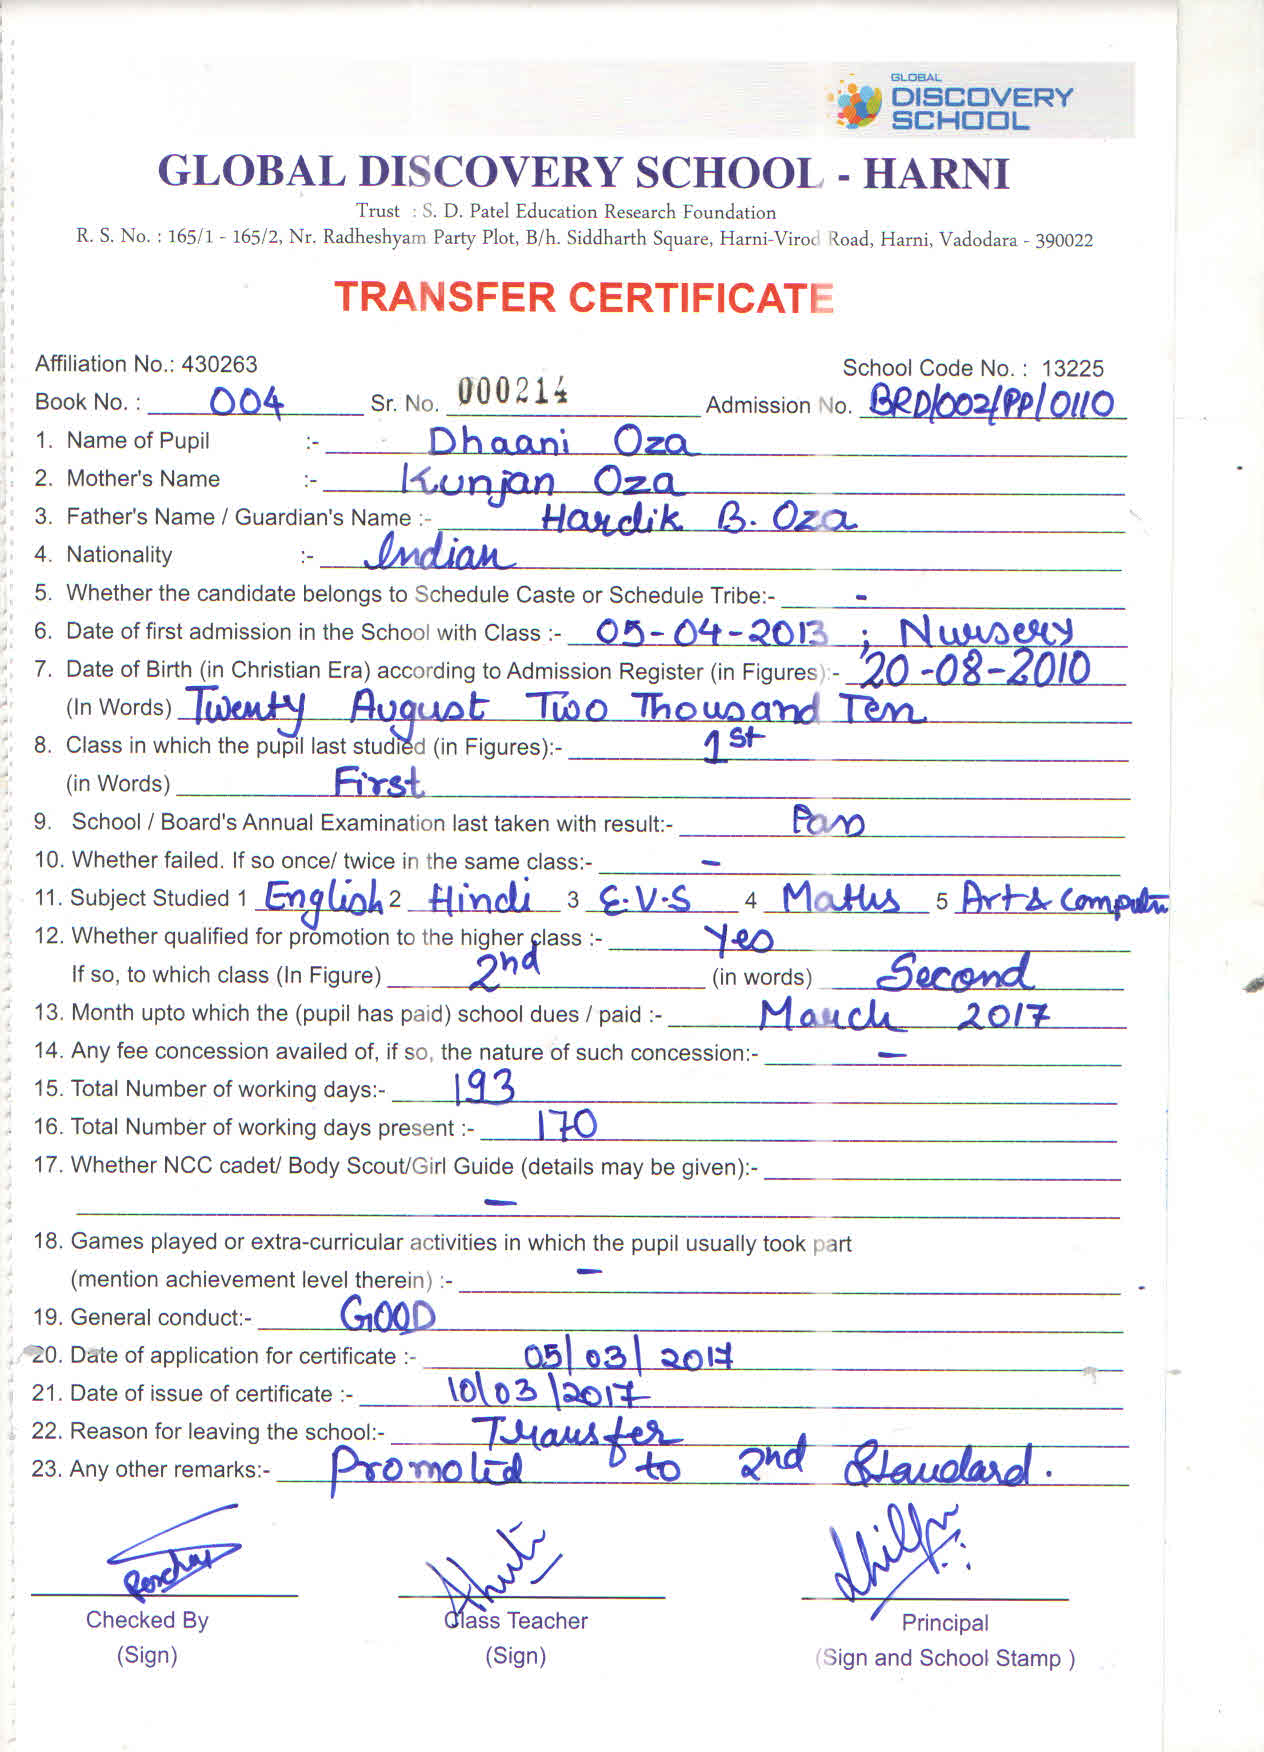 GLOBAL
DISCOVERY
SCHOOL
GLOBAL DISCOVERY SCHOOL - HARNI
Trust : S. D. Patel Education Research Foundation
R. S. No. : 165/1 - 165/2, Nr. Radheshyam Party Plot, B/h. Siddharth Square, Harni-Virod Road, Harni, Vadodara - 390022
TRANSFER CERTIFICATE
Affiliation No.: 430263 School Code No. : 13225
Book No. : 004 Sr. No. 000214 Admission No. BRD/002/PP/0110
1. Name of Pupil :- Dhaani Oza
2. Mother's Name :- Kunjan Oza
3. Father's Name / Guardian's Name :- Hardik B. Oza
4. Nationality :- Indian
5. Whether the candidate belongs to Schedule Caste or Schedule Tribe:- -
6. Date of first admission in the School with Class :- 05-04-2013 ; Nursery
7. Date of Birth (in Christian Era) according to Admission Register (in Figures):- 20-08-2010
(In Words) Twenty August Two Thousand Ten
8. Class in which the pupil last studied (in Figures):- 1st
(in Words) First
9. School / Board's Annual Examination last taken with result:- Pass
10. Whether failed. If so once/ twice in the same class:- -
11. Subject Studied 1 English 2 Hindi 3 E.V.S 4 Maths 5 Art & Computer
12. Whether qualified for promotion to the higher class :- Yes
If so, to which class (In Figure) 2nd (in words) Second
13. Month upto which the (pupil has paid) school dues / paid :- March 2017
14. Any fee concession availed of, if so, the nature of such concession:- -
15. Total Number of working days:- 193
16. Total Number of working days present :- 170
17. Whether NCC cadet/ Body Scout/Girl Guide (details may be given):-
-
18. Games played or extra-curricular activities in which the pupil usually took part
(mention achievement level therein) :- -
19. General conduct:- GOOD
20. Date of application for certificate :- 05/03/2017
21. Date of issue of certificate :- 10/03/2017
22. Reason for leaving the school:- Transfer
23. Any other remarks:- Promoted to 2nd Standard.
Checked By Class Teacher Principal
(Sign) (Sign) (Sign and School Stamp )